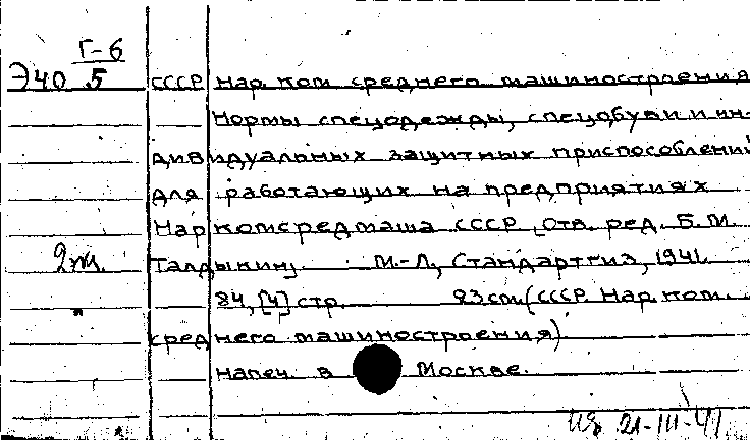 Г-6
Э40 5 СССР Нар. ком. среднего машиностроения
Нормы спецодежды, спецобуви и ин-
дивидуальных защитных приспособлений
для работающих на предприятиях
Наркомсредмаша СССР [Отв. ред. Б.М.
2эк. Талдыкин]. М.-Л., Стандартгиз, 1941.
84, [4] стр. 23 см (СССР Нар. ком.
среднего машиностроения)
Напеч. в Москве.
21-III-41